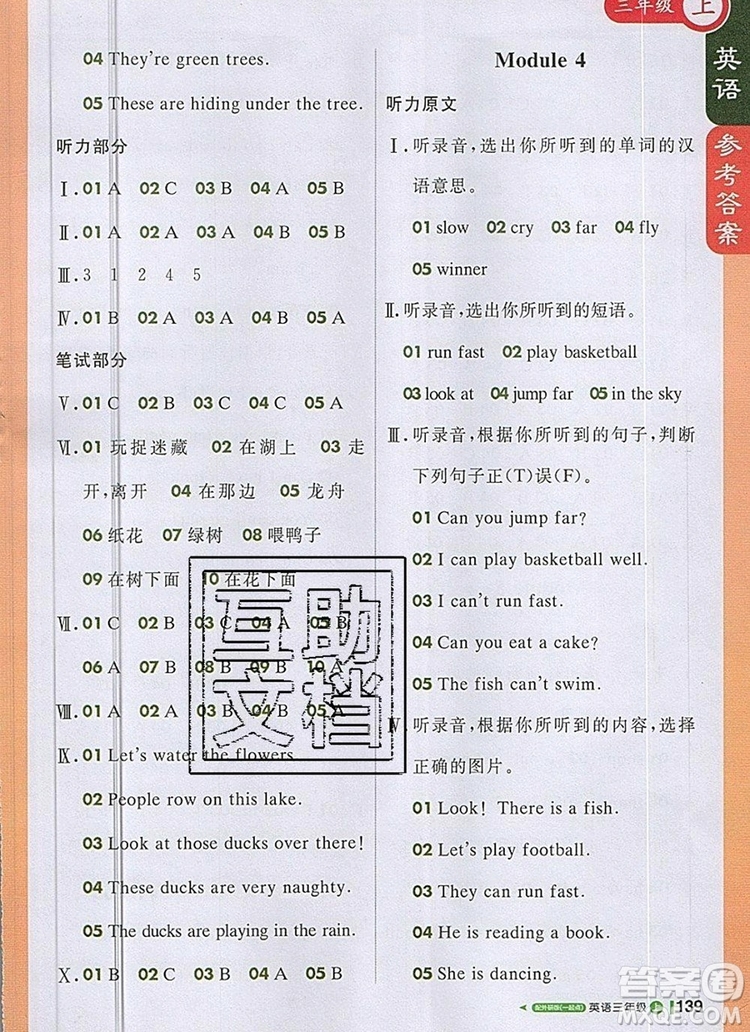 三年级 上
英语
参考答案
04 They're green trees.
05 These are hiding under the tree.
听力部分
Ⅰ. 01 A 02 C 03 B 04 A 05 B
Ⅱ. 01 A 02 A 03 B 04 A 05 B
Ⅲ. 3 1 2 4 5
Ⅳ. 01 B 02 A 03 A 04 B 05 A
笔试部分
Ⅴ. 01 C 02 B 03 C 04 C 05 A
Ⅵ. 01 玩捉迷藏 02 在湖上 03 走
开,离开 04 在那边 05 龙舟
06 纸花 07 绿树 08 喂鸭子
09 在树下面 10 在花下面
Ⅶ. 01 C 02 B 03 C 04 A 05 B
06 A 07 B 08 B 09 B 10 A
Ⅷ. 01 A 02 A 03 B 04 B 05 B
Ⅸ. 01 Let's water the flowers.
02 People row on this lake.
03 Look at those ducks over there!
04 These ducks are very naughty.
05 The ducks are playing in the rain.
Ⅹ. 01 B 02 A 03 B 04 A 05 B
Module 4
听力原文
Ⅰ. 听录音,选出你所听到的单词的汉
语意思。
01 slow 02 cry 03 far 04 fly
05 winner
Ⅱ. 听录音,选出你所听到的短语。
01 run fast 02 play basketball
03 look at 04 jump far 05 in the sky
Ⅲ. 听录音,根据你所听到的句子,判断
下列句子正(T)误(F)。
01 Can you jump far?
02 I can play basketball well.
03 I can't run fast.
04 Can you eat a cake?
05 The fish can't swim.
Ⅳ. 听录音,根据你所听到的内容,选择
正确的图片。
01 Look! There is a fish.
02 Let's play football.
03 They can run fast.
04 He is reading a book.
05 She is dancing.
互助
文档
答案圈
配外研版(一起点) 英语三年级 上 139